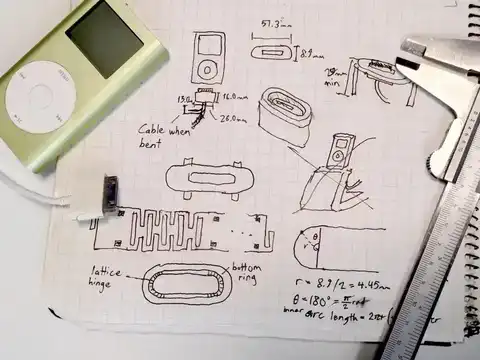 MENU
57.3mm
8.9mm
29mm
min.
13.0m
16.0mm
26.0mm
Cable when
bent
lattice
hinge
bottom
ring
θ
r
r = 8.9/2 = 4.45mm
θ = 180° = π/2 rad
inner arc length = 2πr